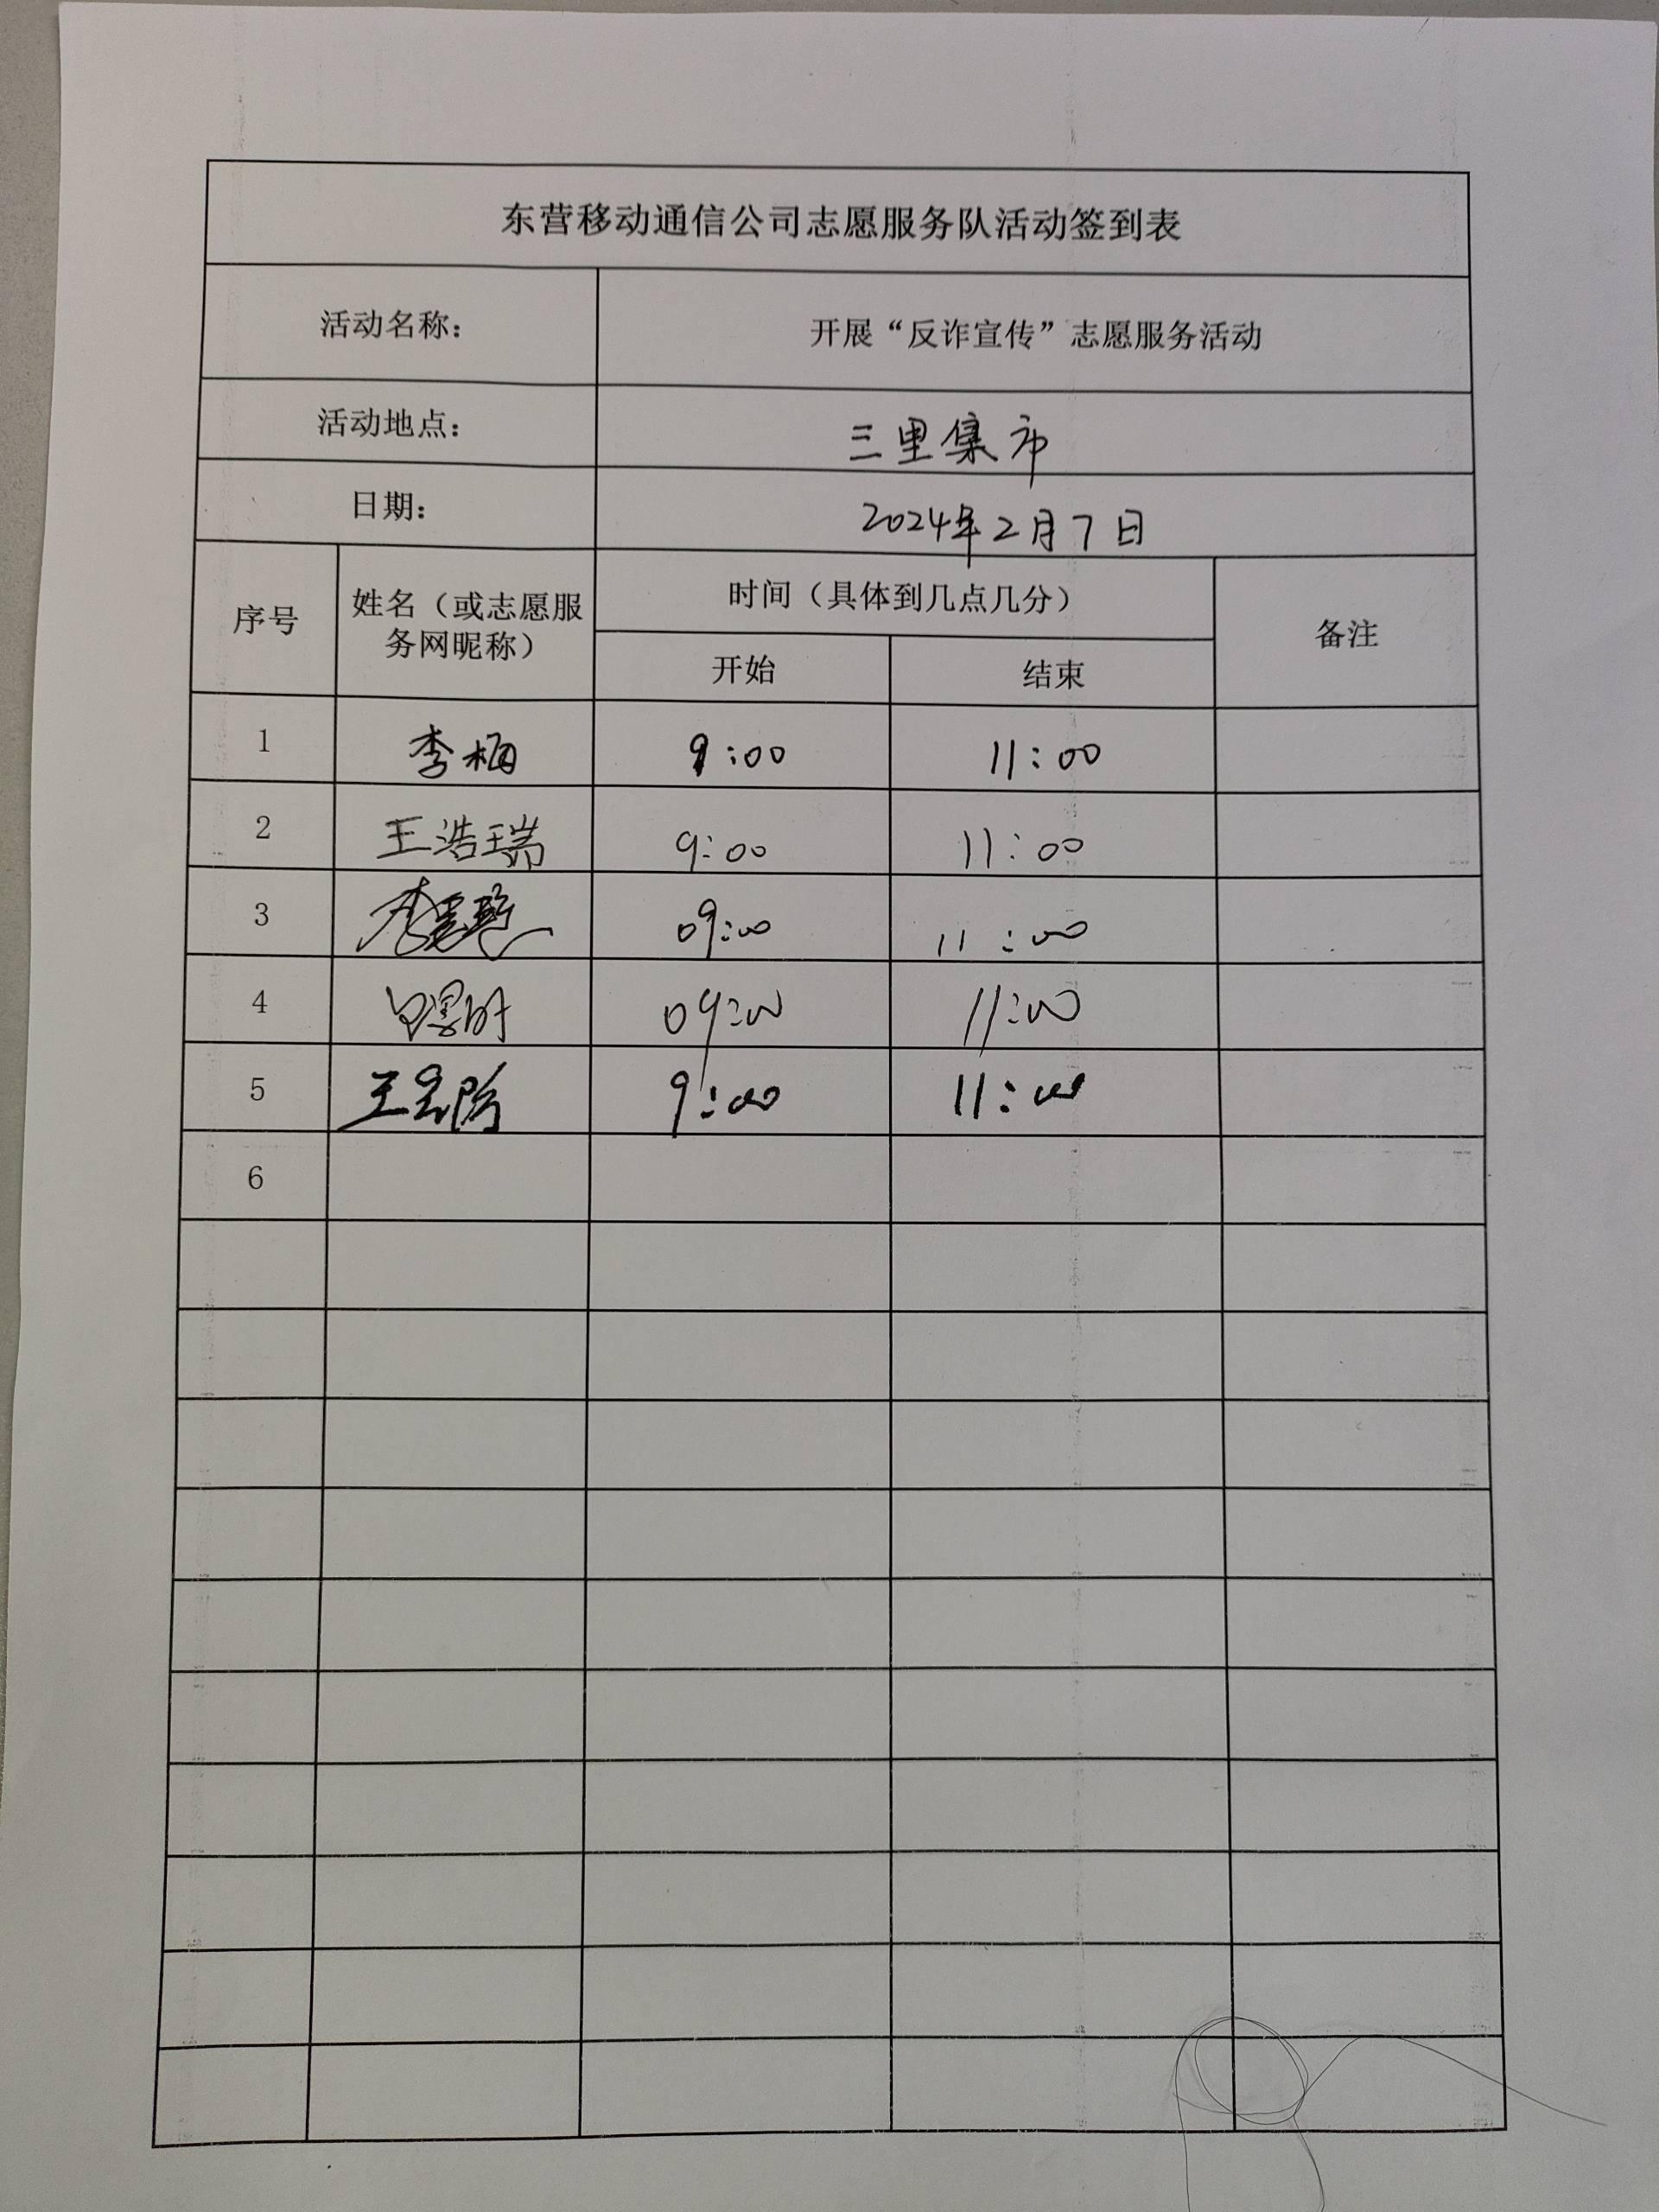 东营移动通信公司志愿服务队活动签到表
活动名称： 开展“反诈宣传”志愿服务活动
活动地点： 三里集市
日期： 2024年2月7日
序号 姓名（或志愿服务网昵称） 时间（具体到几点几分） 备注
开始 结束
1 李梅 9:00 11:00
2 王浩瑞 9:00 11:00
3 09:00 11:00
4 09:00 11:00
5 9:00 11:00
6